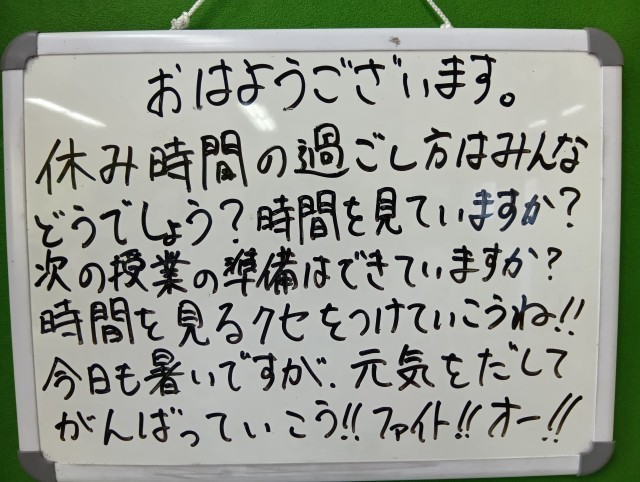 おはようございます。
休み時間の過ごし方はみんな
どうでしょう?時間を見ていますか?
次の授業の準備はできていますか?
時間を見るクセをつけていこうね!!
今日も暑いですが、元気をだして
がんばっていこう!!ファイト!!オー!!